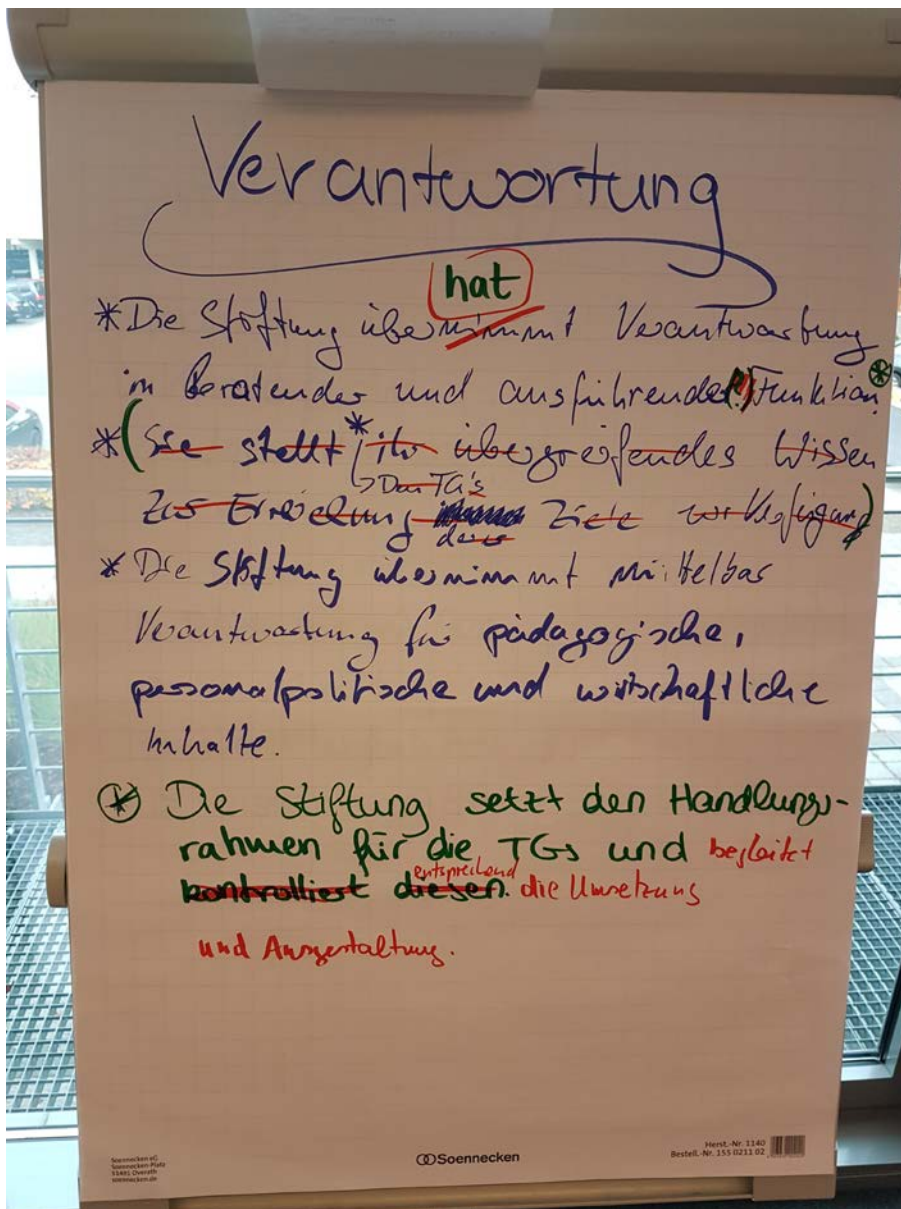 Verantwortung
hat
* Die Stiftung übernimmt Verantwortung
in beratender und ausführender Funktion.
* (Sie stellt * ihr übergreifendes Wissen
Den TG's
zur Erreichung Ziele zur Verfügung)
deren
* Die Stiftung übernimmt mittelbar
Verantwortung für pädagogische,
personalpolitische und wirtschaftliche
Inhalte.
* Die Stiftung setzt den Handlungs-
rahmen für die TGs und begleitet
entsprechend
kontrolliert diesen. die Umsetzung
und Ausgestaltung.
Soennecken eG
Soennecken-Platz
51491 Overath
soennecken.de
Soennecken
Herst.-Nr. 1140
Bestell.-Nr. 155 0211 02